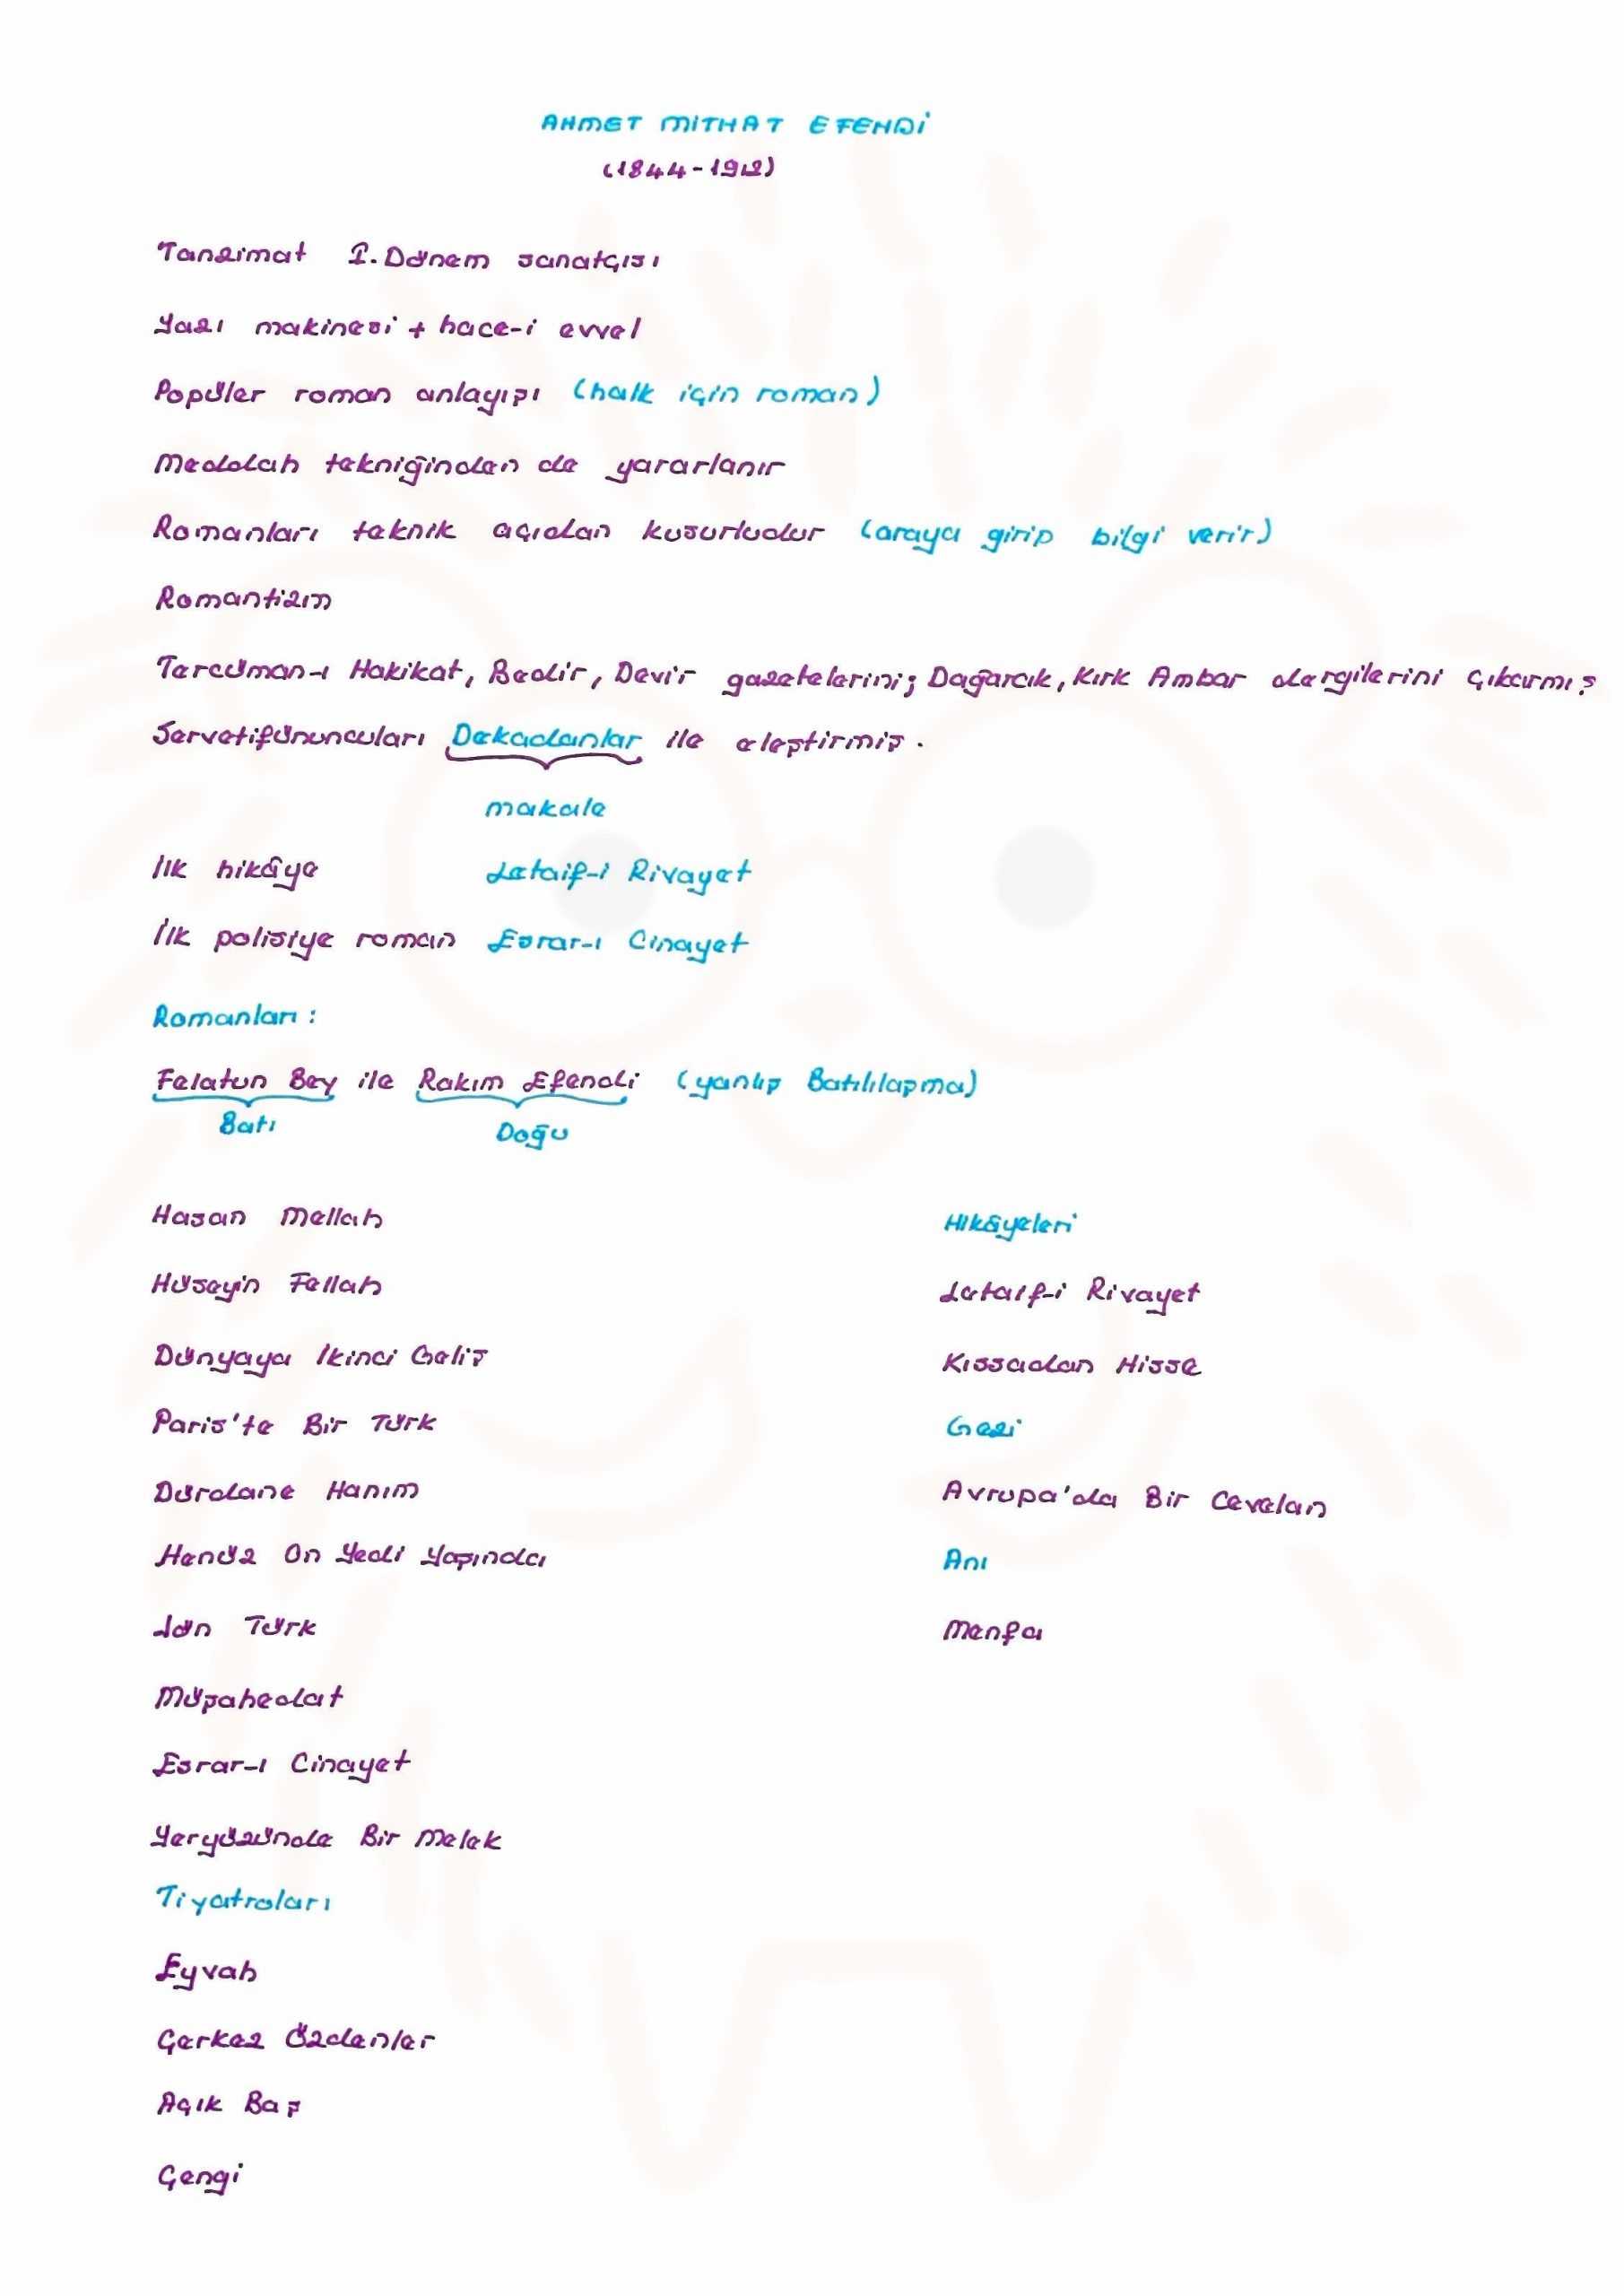 AHMET MİTHAT EFENDİ
(1844-1912)
Tanzimat I. Dönem sanatçısı
Yazı makinesi + hace-i evvel
Popüler roman anlayışı (halk için roman)
Meddah tekniğinden de yararlanır
Romanları teknik açıdan kusurludur (araya girip bilgi verir)
Romantizm
Tercüman-ı Hakikat, Bedir, Devir gazetelerini; Dağarcık, Kırk Ambar dergilerini çıkarmış
Servetifünuncuları Dekadanlar ile eleştirmiş.
makale
İlk hikâye Letaif-i Rivayet
İlk polisiye roman Esrar-ı Cinayet
Romanları:
Felatun Bey ile Rakım Efendi (yanlış Batılılaşma)
Batı Doğu
Hasan Mellah
Hüseyin Fellah
Dünyaya İkinci Geliş
Paris'te Bir Türk
Dürdane Hanım
Henüz On Yedi Yaşında
Jön Türk
Müşahedat
Esrar-ı Cinayet
Yeryüzünde Bir Melek
Tiyatroları
Eyvah
Çerkez Özdenler
Açık Baş
Çengi
Hikâyeleri
Letaif-i Rivayet
Kıssadan Hisse
Gezi
Avrupa'da Bir Cevelan
Anı
Menfa